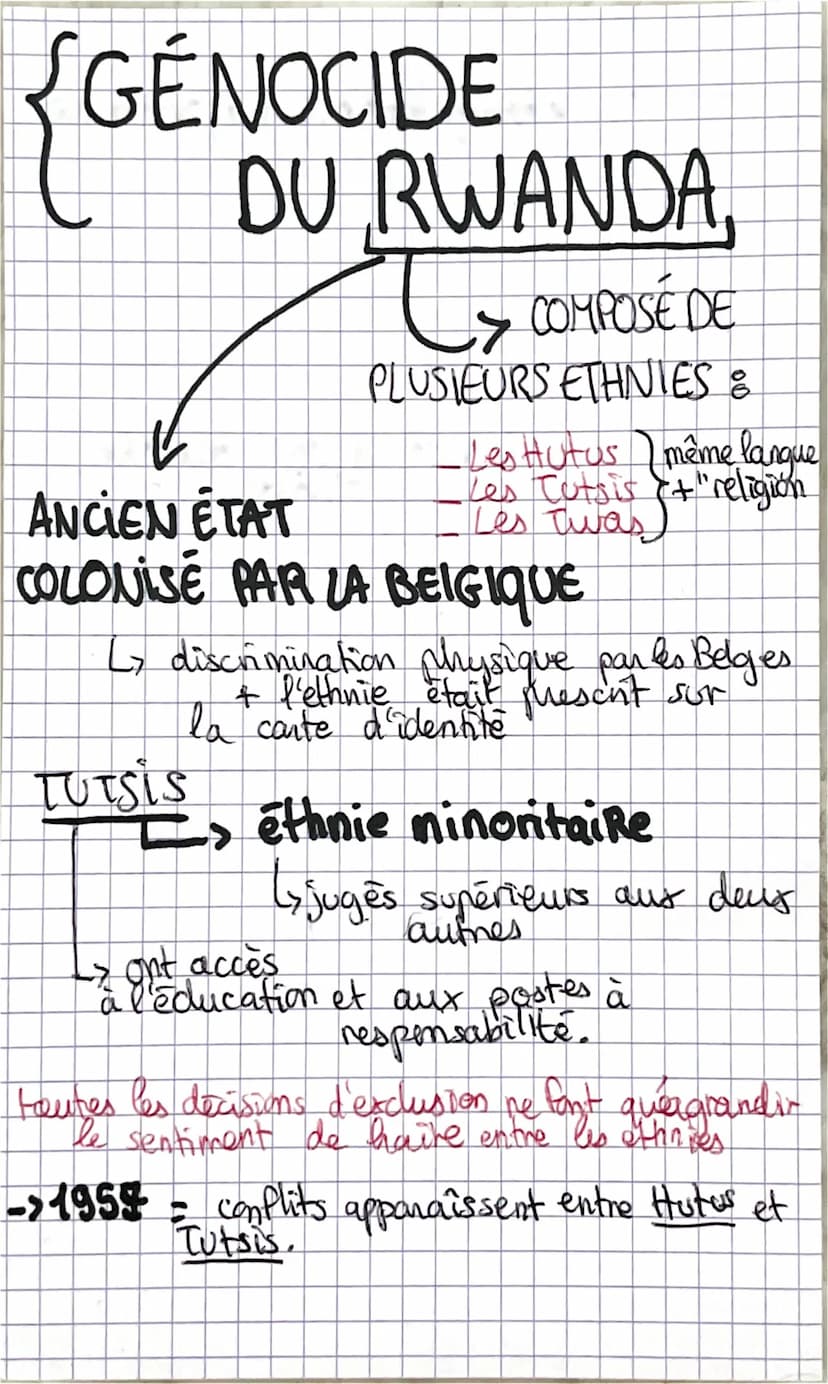 GÉNOCIDE
DU RWANDA
-> COMPOSÉ DE
PLUSIEURS ETHNIES :
- Les Hutus
- Les Tutsis
- Les Twas
même langue
+ " religion
ANCIEN ÉTAT
COLONISÉ PAR LA BELGIQUE
↳ discrimination physique par les Belges
+ l'ethnie était présent sur
la carte d'identité
TUTSIS
-> éthnie minoritaire
↳ jugés supérieurs aux deux
autres
↳ ont accès
à l'éducation et aux postes à
responsabilité.
toutes les décisions d'exclusion ne font qu'agrandir
le sentiment de haine entre les ethnies
-> = conflits apparaîssent entre Hutus et
Tutsis.